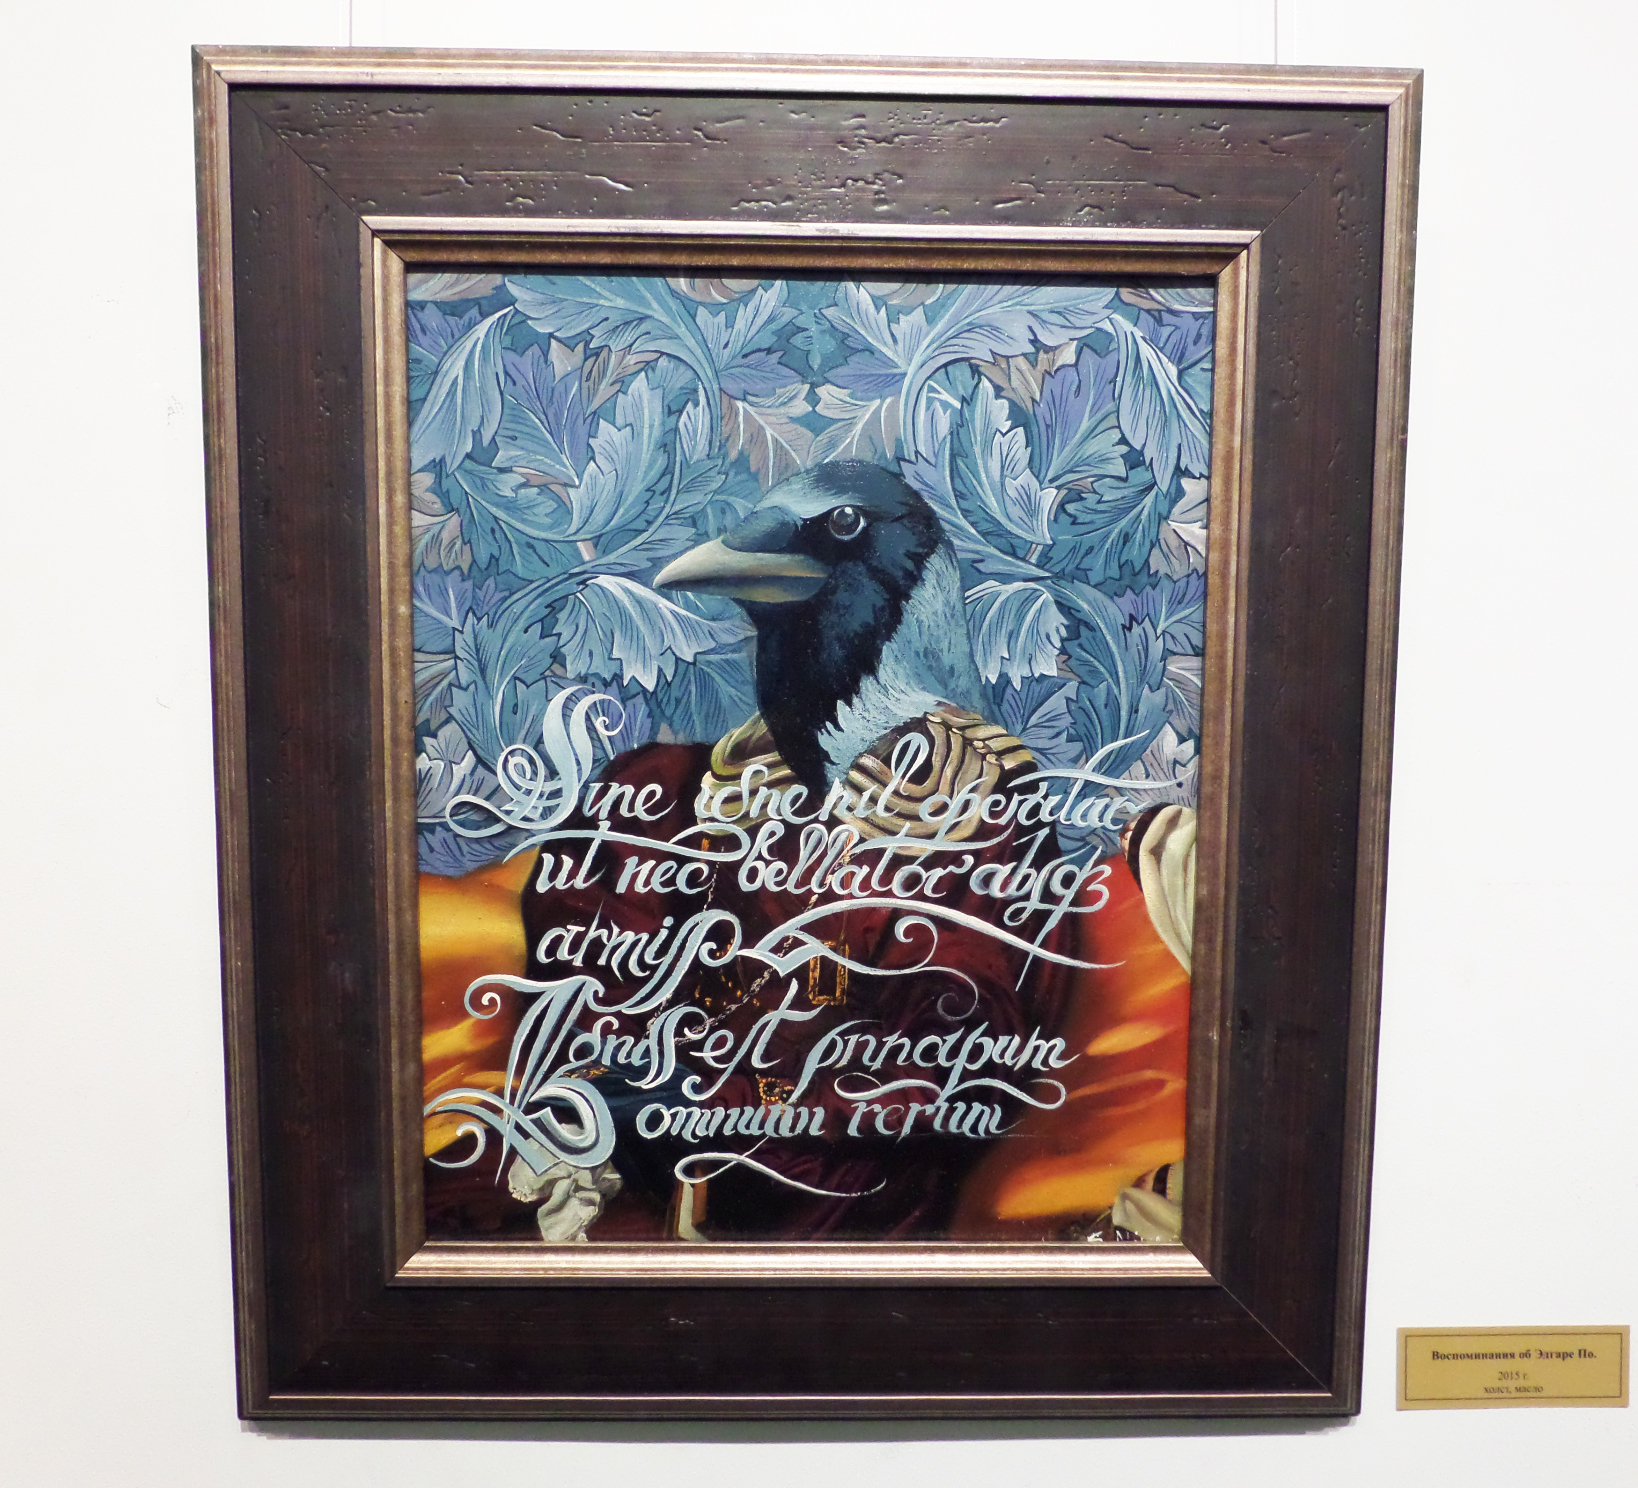 Sine igne nil operatur
ut nec bellator absqz
armiss
Ignis est principium
omnium rerum
Воспоминания об Эдгаре По.
2015 г.
холст, масло